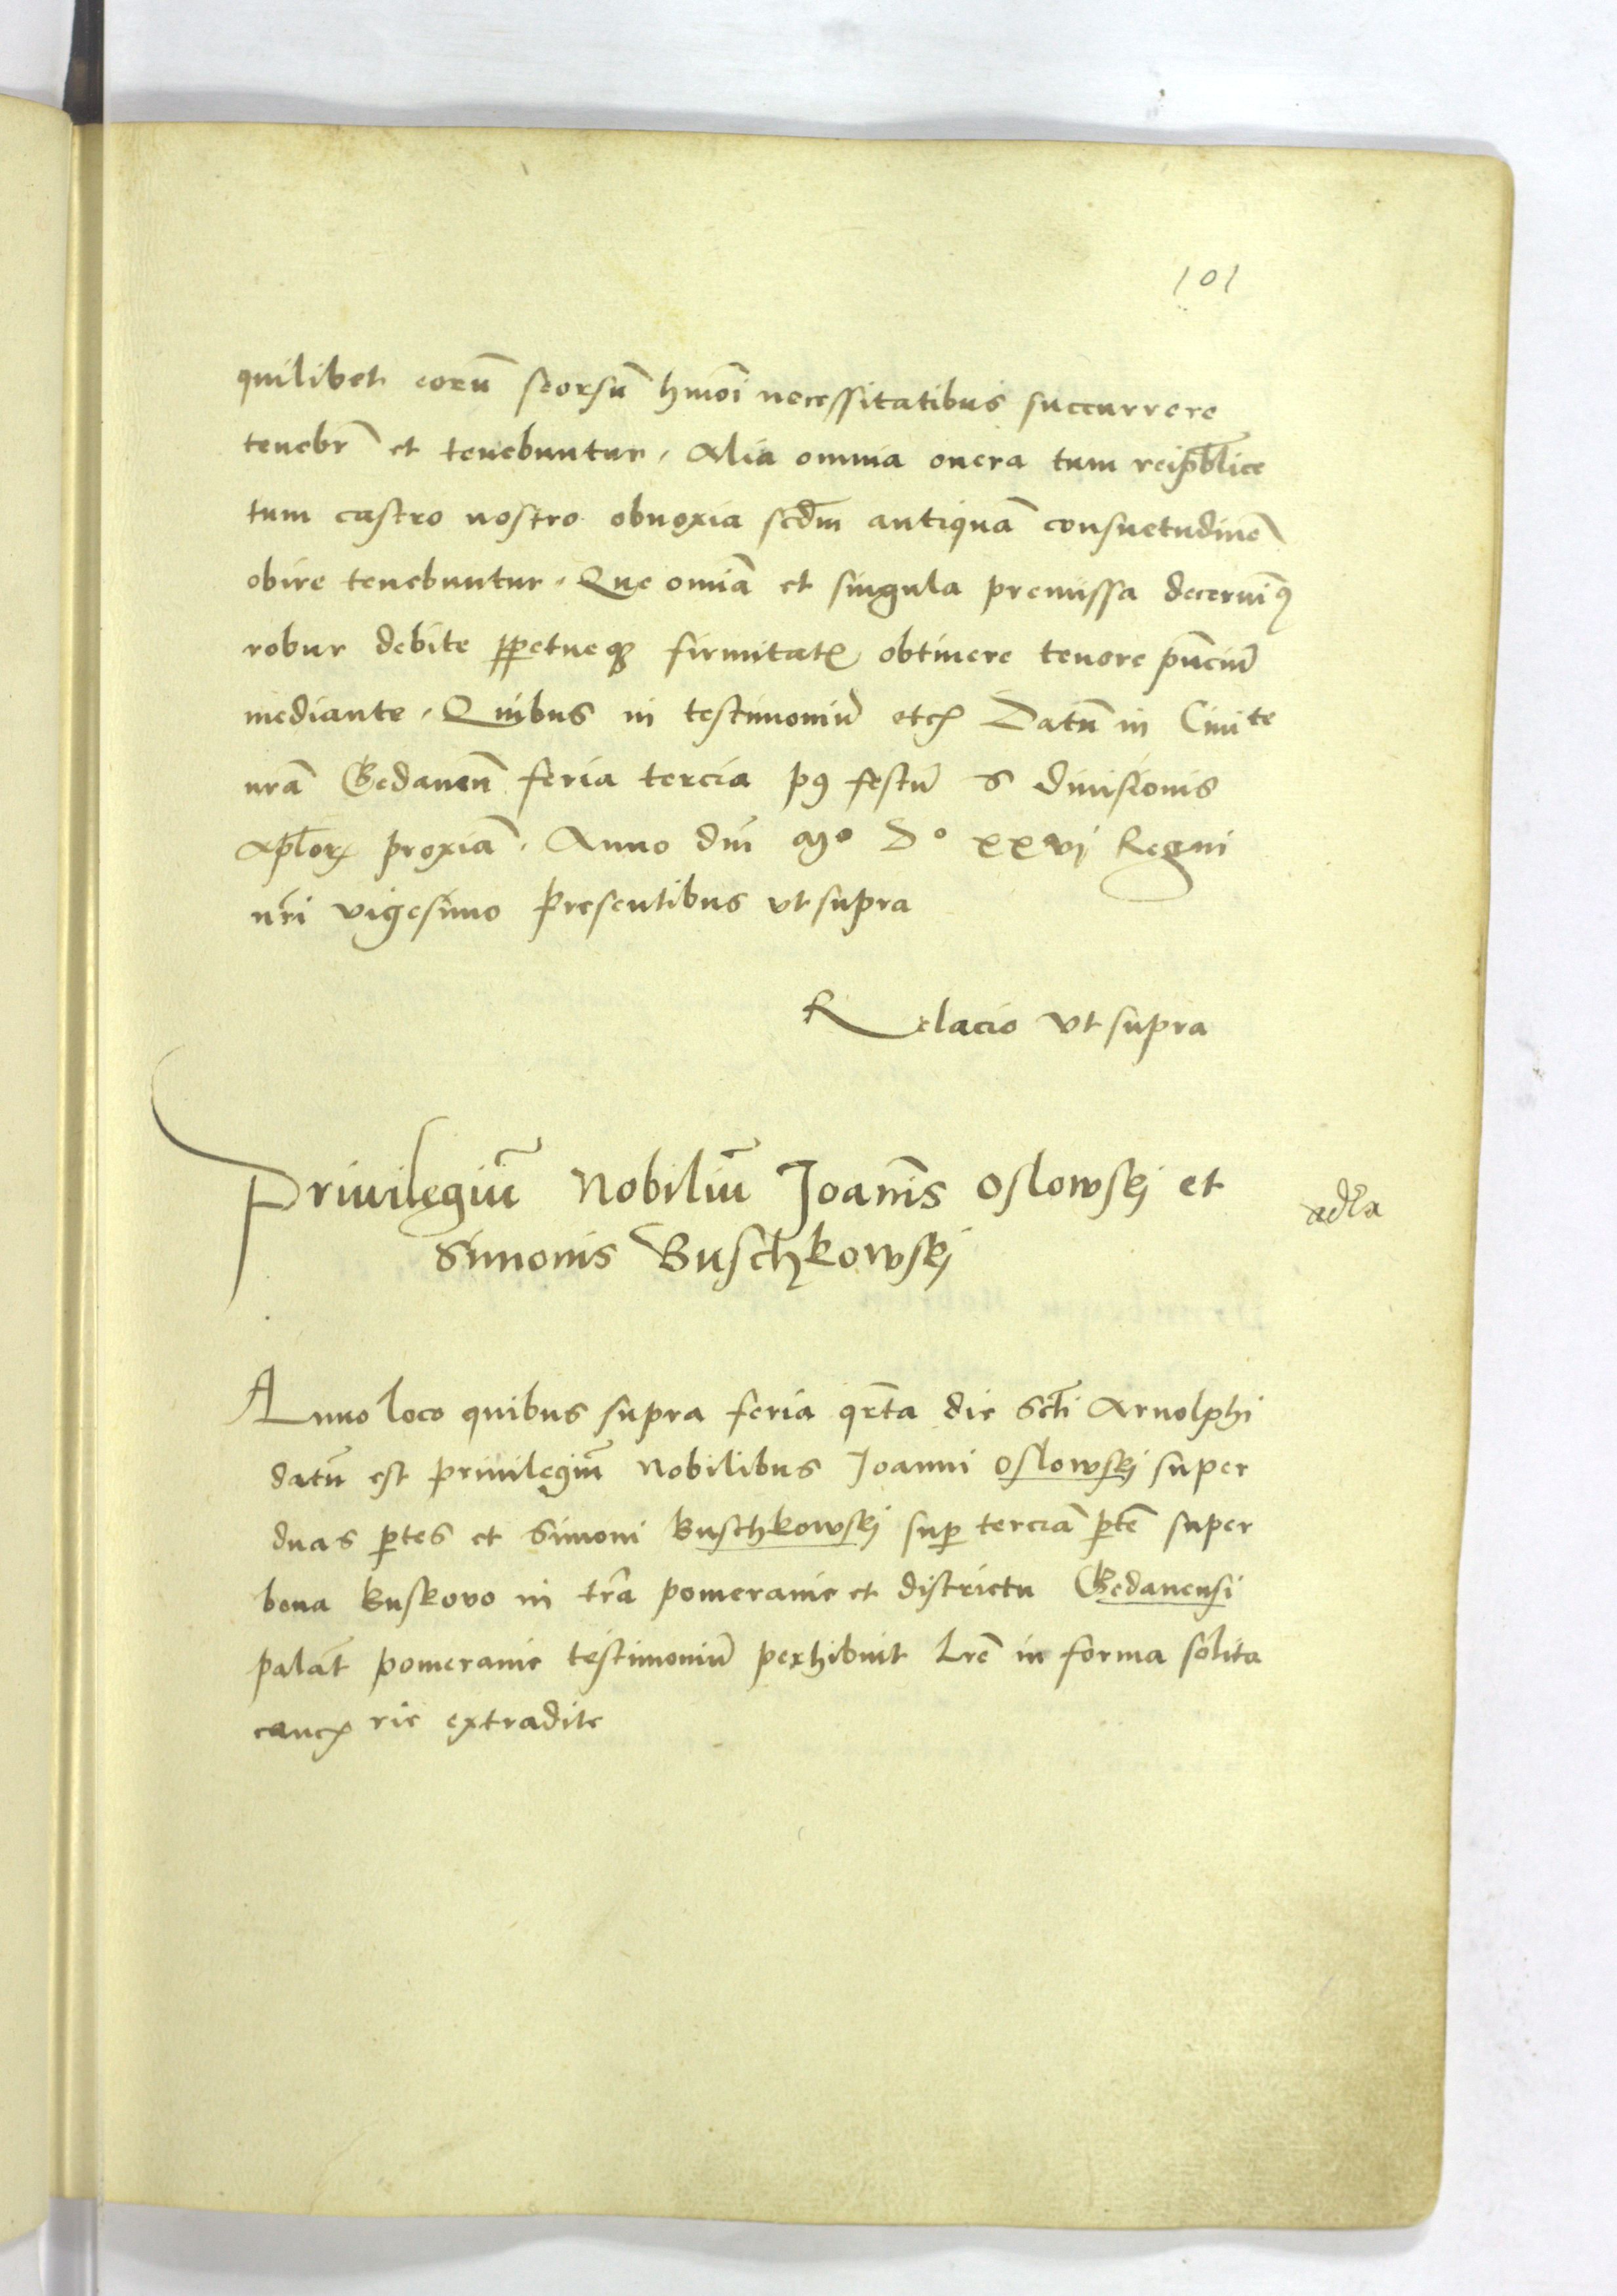 101
quilibet eorū seorsū hmōi necessitatibus succurrere
tenebr̄ et tenebuntur, Alia omnia onera tum reipb̄lice
tum castro nostro obnoxia scd̄m antiquā consuetudinē
obire tenebuntur, Que om̄ia et singula premissa decernimꝰ
robur debite ꝑpetueqꝫ firmitatꝭ obtinere tenore pn̄ciū
mediante, Quibus in testimoniū etcꝭ Datū in Ciuite
nrā Gedanen̄ feria tercia pꝰ festū s diuisionis
apl̄oꝝ proxiā, Anno dn̄i Mº Dº xxvi Regni
nr̄i vigesimo presentibus vt supra
Relacio vt supra
Priuilegiū Nobiliū Joannīs Oslowskj et
Simonis Buschkowskj
Anno loco quibus supra feria qr̄ta die Sctī Arnolphi
datū est priuilegiū Nobilibus Joanni Oslowskj super
duas ꝑtes et Simoni Buschkowskj suꝑ terciā ꝑtē super
bona Buskovo in tr̄a pomeranie et districtu Gedanensi
palat̄ pomeranie testimoniū perhibuit Lrē in forma solita
cancꝭ rie extradite